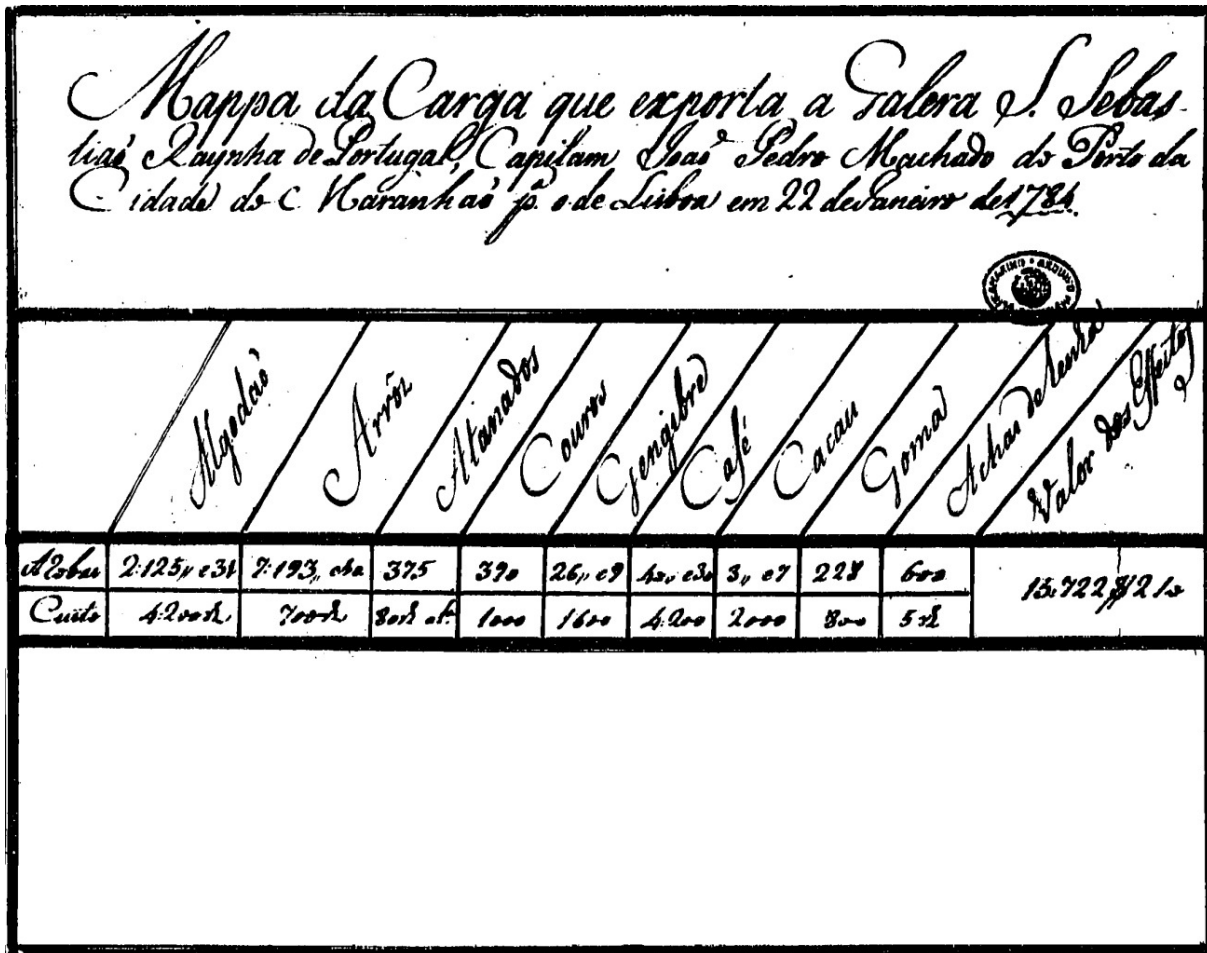 Mappa da Carga que exporta a Galera S. Sebas-
tiaõ Raynha de Portugal, Capitam Joaõ Pedro Machado do Porto da
Cidade do Maranhaõ p.ª o de Lisboa em 22 de Janeiro de 1784
Algodaõ Arrôz Atanados Couros Gengibre Café Cacau Goma Achas de Lenha Valor dos Effeitos
2:125,, e 31 7:193,, 375 390 26,, e 9 40,, e 30 3,, e 7 228 600
Custo 4:200 700 800 1000 1600 4:200 2000 800 5